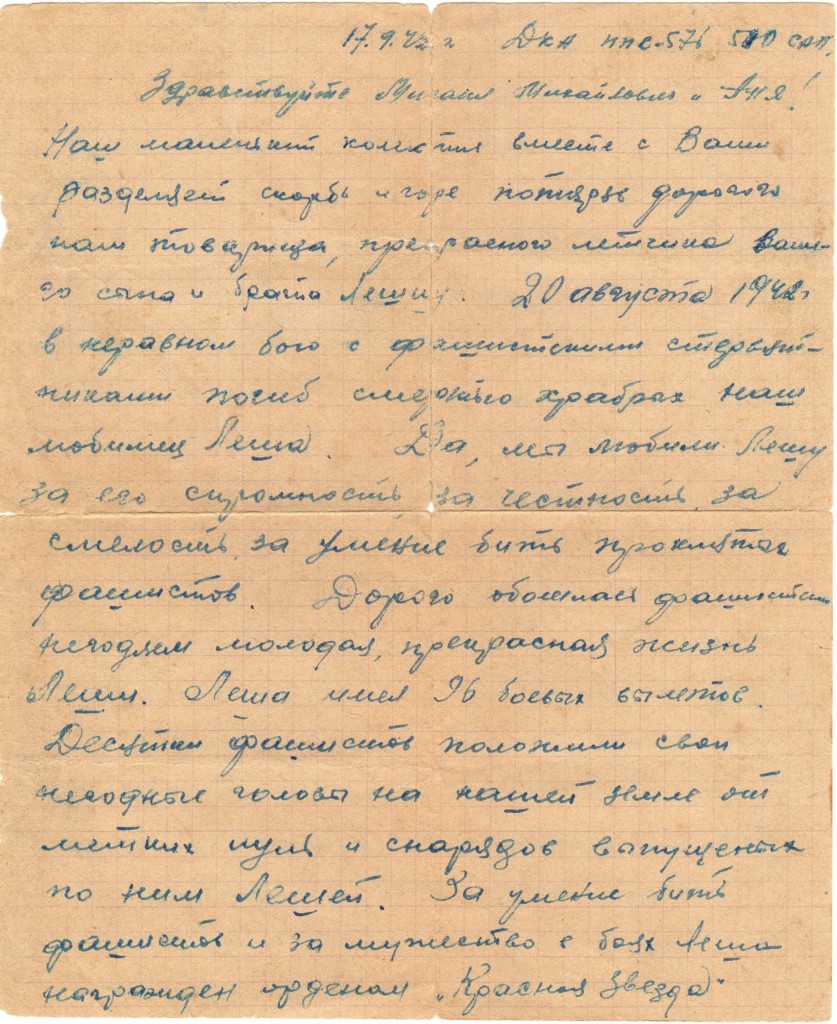 17.9.42 г. ДКА ппс-576 САП.
Здравствуйте Михаил Михайлович и Аня!
Наш маленький колектив вместе с Вами
разделяет скорбь и горе потерь дорогого
нам товарища, прекрасного летчика Ваше-
го сына и брата Лешу. 20 августа 1942г
в неравном бою с фашистскими стервят-
никами погиб смертью храбрых наш
любимец Леша. Да, мы любили Лешу
за его скромность за честность, за
смелость, за умение бить проклятых
фашистов. Дорого обошлась фашистским
негодяем молодая, прекрасная жизнь
Леши. Леша имел 96 боевых вылетов.
Десятки фашистов положили свои
негодные головы на нашей земле от
метких пуль и снарядов выпущеных
по ним Лешей. За умение бить
фашистов и за мужество в боях Леша
награжден орденом „Красная звезда"